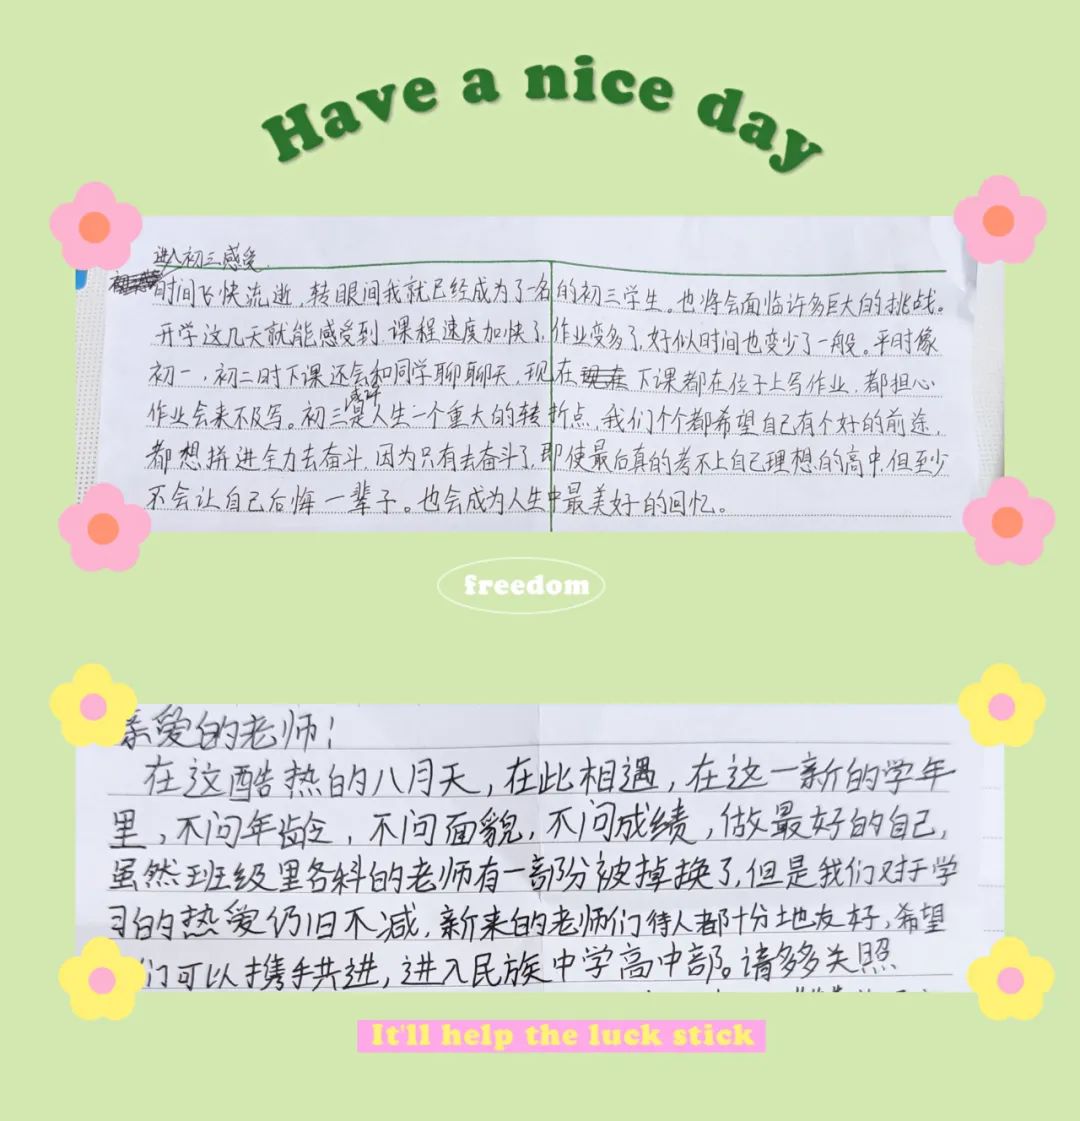 Have a nice day
进入初三感受
时间飞快流逝，转眼间我就已经成为了一名的初三学生。也将会面临许多巨大的挑战。
开学这几天就能感受到，课程速度加快了，作业变多了，好似时间也变少了一般。平时像
初一，初二时下课还会和同学聊聊天，现在下课都在位子上写作业，都担心
作业会来不及写。初三是人生一个重大的转折点，我们个个都希望自己有个好的前途，
都想拼进全力去奋斗，因为只有去奋斗了，即使最后真的考不上自己理想的高中，但至少
不会让自己后悔一辈子。也会成为人生中最美好的回忆。
freedom
亲爱的老师！
在这酷热的八月天，在此相遇，在这一新的学年
里，不问年龄，不问面貌，不问成绩，做最好的自己，
虽然班级里各科的老师有一部分被掉换了，但是我们对于学
习的热爱仍旧不减，新来的老师们待人都十分地友好，希望
们可以携手共进，进入民族中学高中部。请多多关照
It'll help the luck stick